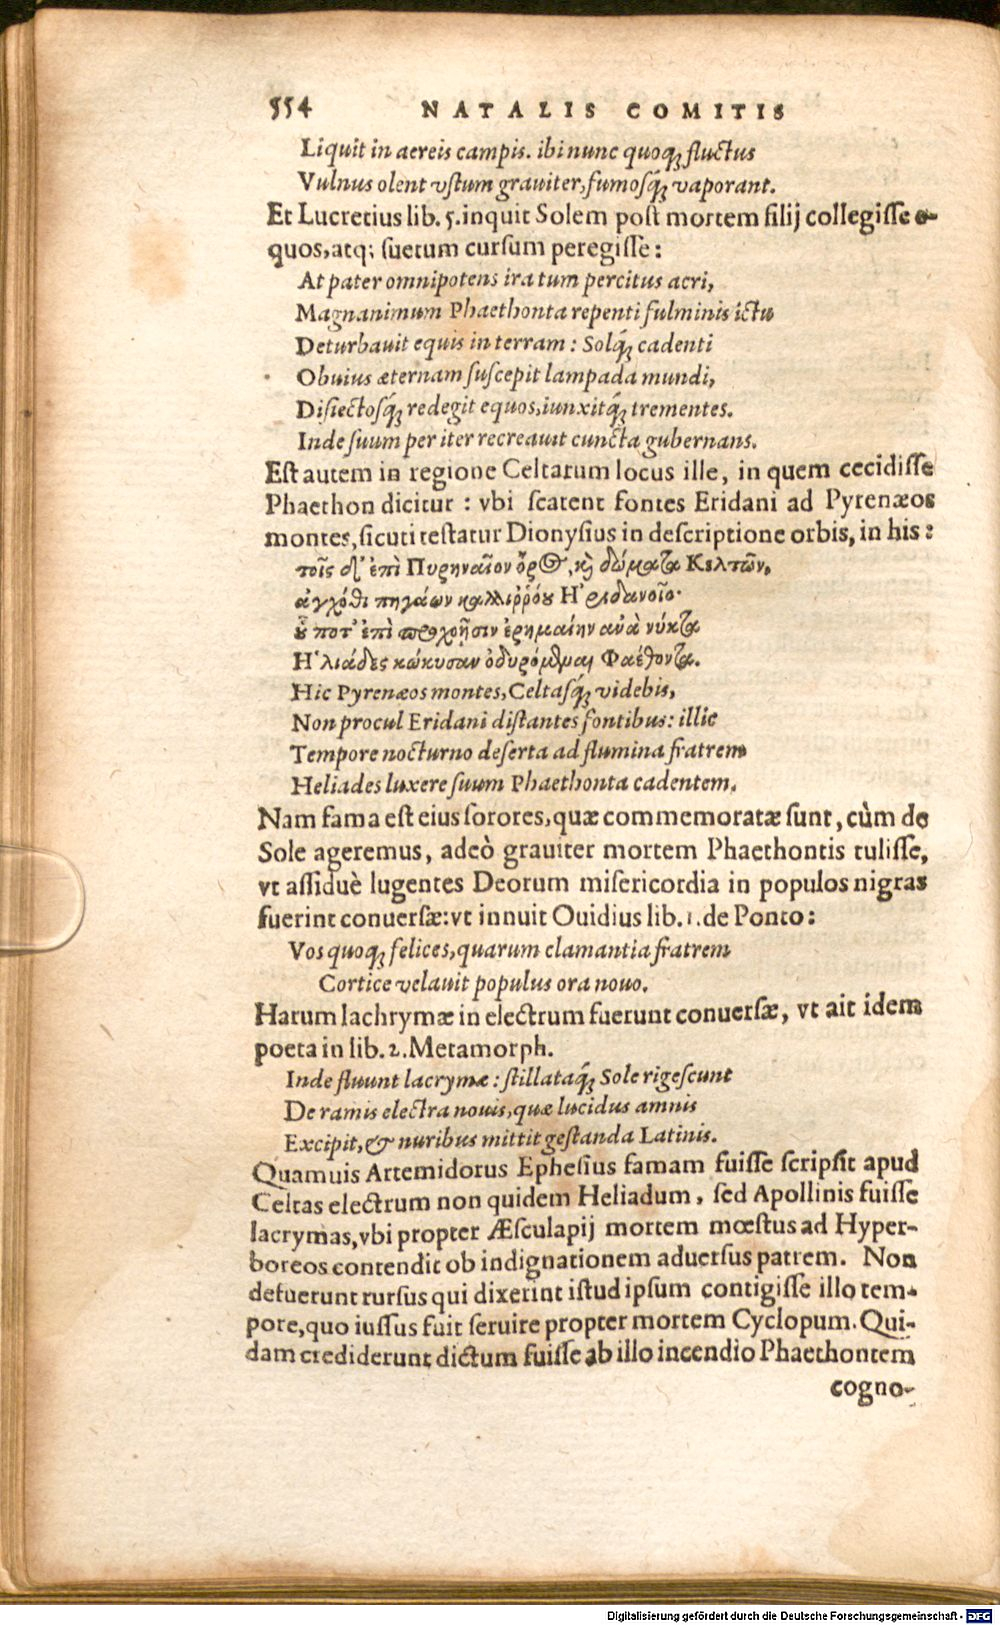 554 NATALIS COMITIS
Liquit in aereis campis. ibi nunc quoq; fluctus
Vulnus olent vstum grauiter, fumosq́; vaporant.
Et Lucretius lib. 5. inquit Solem post mortem filij collegisse e-
quos, atq; suetum cursum peregisse:
At pater omnipotens ira tum percitus acri,
Magnanimum Phaethonta repenti fulminis ictu
Deturbauit equis in terram: Solq́; cadenti
Obuius æternam suscepit lampada mundi,
Disiectosq́; redegit equos, iunxitq́; trementes.
Inde suum per iter recreauit cuncta gubernans.
Est autem in regione Celtarum locus ille, in quem cecidisse
Phaethon dicitur: vbi scatent fontes Eridani ad Pyrenæos
montes, sicuti testatur Dionysius in descriptione orbis, in his:
τοῖς δ' ἐπὶ Πυρηναῖον ὄρος, κỳ δώματα Κελτῶν,
ἀγχόθι πηγάων καλλιῤῥόου Ἠριδανοῖο·
οὗ ποτ' ἐπὶ προχοῇσιν ἐρημαίην ἀνὰ νύκτα
Ἡλιάδες κώκυσαν ὀδυρόμεναι Φαέθοντα.
Hic Pyrenæos montes, Celtasq́; videbis,
Non procul Eridani distantes fontibus: illic
Tempore nocturno deserta ad flumina fratrem
Heliades luxere suum Phaethonta cadentem.
Nam fama est eius sorores, quæ commemoratæ sunt, cùm de
Sole ageremus, adeò grauiter mortem Phaethontis tulisse,
vt assiduè lugentes Deorum misericordia in populos nigras
fuerint conuersæ: vt innuit Ouidius lib. 1. de Ponto:
Vos quoq; felices, quarum clamantia fratrem
Cortice velauit populus ora nouo.
Harum lachrymæ in electrum fuerunt conuersæ, vt ait idem
poeta in lib. 2. Metamorph.
Inde fluunt lacrymæ: stillataq́; Sole rigescunt
De ramis electra nouis, quæ lucidus amnis
Excipit, & nuribus mittit gestanda Latinis.
Quamuis Artemidorus Ephesius famam fuisse scripsit apud
Celtas electrum non quidem Heliadum, sed Apollinis fuisse
lacrymas, vbi propter Æsculapij mortem mœstus ad Hyper-
boreos contendit ob indignationem aduersus patrem. Non
defuerunt rursus qui dixerint istud ipsum contigisse illo tem-
pore, quo iussus fuit seruire propter mortem Cyclopum. Qui-
dam crediderunt dictum fuisse ab illo incendio Phaethontem
cogno-
Digitalisierung gefördert durch die Deutsche Forschungsgemeinschaft - DFG